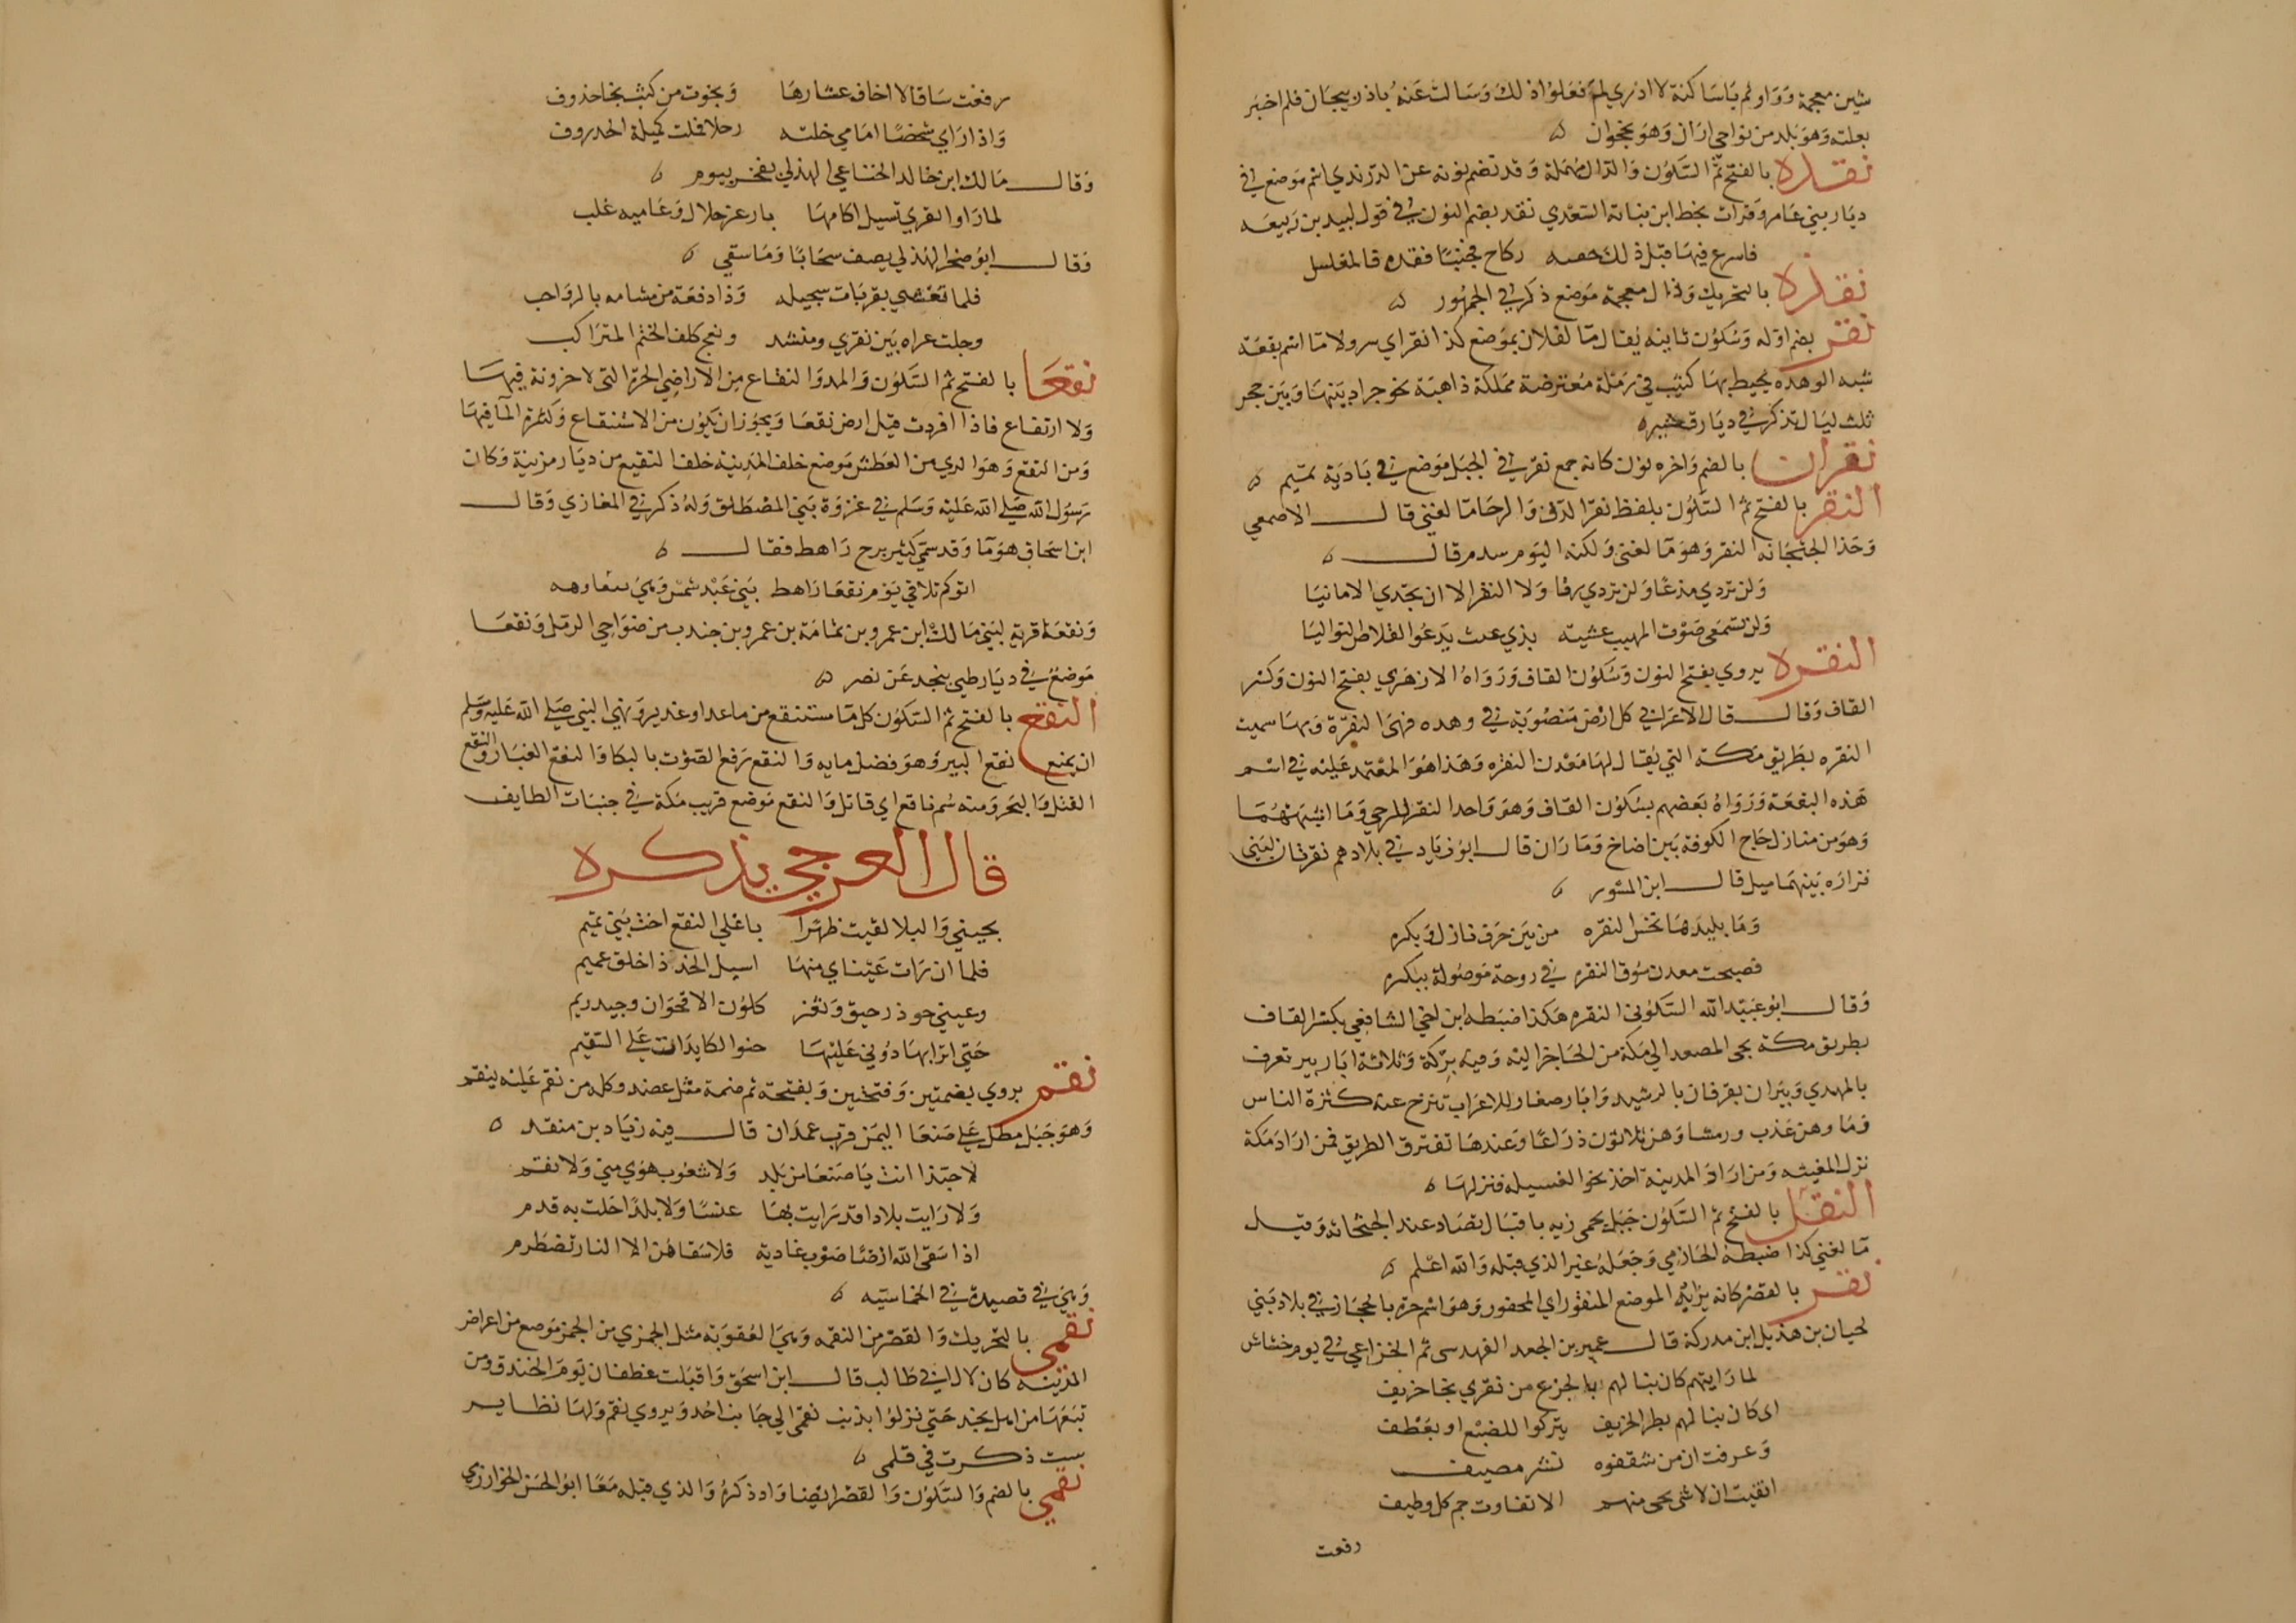 شين معجمة وواو ثم ياسا كنة لا ادري لم فعلوا ذلك وسالت عنه باذربيجان فلم اخبر
بعلته وهو بلد من نواحي اران وهو نخجوان ه
نقده بالفتح ثم السكون والدال مهملة وقد تضم نونه عن الدرندي اسم موضع في
ديار بني عامر وقرات بخط ابن نباتة السعدي نقد بضم النون في قول لبيد بن ربيعه
فاسرع فيها قبل ذلك حقبه ركاح فجنبا نقده فالمغاسل
نقذه بالتحريك وذال معجمة موضع ذكر في الجمهور ه
نقر بضم اوله وسكون ثانيه يقال ما لفلان بموضع كذا نقر اي ولا ما اسم بقعة
شبه الوهده يحيط بها كثيب في رملة معترضة مهلكة ذاهبة نحو جراد بينها وبين حجر
ثلث ليال تذكر في ديار قشير ه
نقران بالضم واخره نون كانه جمع نقر في الجبل موضع في بادية تميم ه
النقر بالفتح ثم السكون بلفظ نقر الدف والرحا ما لغني قال الاصمعي
وحذا الجثجاثه النقر وهو ما لغني ولكنه اليوم سدم قال ه
ولن تردي مذعا ولن تردي رقا ولا النقر الا ان تجدي الامانيا
ولن تسمعي صوت المهيب عشية بذي عث يدعوا القلاص التواليا
النقره يروي بفتح النون وسكون القاف ورواه الازهري بفتح النون وكسر
القاف وقال قال الاعرابي كل ارض منصوبة في وهده فهي النقرة وبها سميت
النقره بطريق مكة التي يقال لها معدن النقره وهذا هو المعتمد عليه في اسم
هذه البقعة ورواه بعضهم بسكون القاف وهو واحد النقر للرحي وما اشبهها
وهو من منازل حاج الكوفة بين اضاخ وماوان قال ابو زياد في بلادهم نقرتان لبني
فزاره بينهما ميل قال ابن المسور ه
فصبحت معدن سوق النقره في روحة موصولة ببكره
وقال ابو عبيد الله السكوني النقره هكذا ضبطه ابن اخي الشافعي بكسر القاف
بطريق مكة يجي المصعد الي مكة من الحاجز اليه وفيه بركة وثلاثة ابار بير تعرف
بالمهدي وبيران يعرفان بالرشيد وابار صغار للاعراب تنزح عند كثرة الناس
وماوهن عذب ورمشا وهن ثلاثون ذراعا وعندها تفترق الطريق فمن اراد مكة
نزل المغيثه ومن اراد المدينة اخذ نحو العسيله فنزلها ه
النقل بالفتح ثم السكون جبل بحمي ضريه باقبال نضاد عند الجثجاثه وقيل
ما لغني كذا ضبطه الحازمي وجعله غير الذي قبله والله اعلم ه
نقر بالقصر كانه يراد به الموضع المنقور اي المحفور وهو اسم حرة بالحجاز في بلاد بني
لحيان بن هذيل ابن مدركة قال عمير بن الجعد الفهدسي ثم الخزاعي في يوم خشاش
لما رايتهم كان نبالهم بالجزع من نقري نجا خريف
اي كان نبالهم بطر الخريف يتركوا للضبع او بعطف
وعرفت ان من شقفوه نشر مصيف
ايقنت ان لا شي يحي منهم الا تفاوت جم كل وظيف
رفعت
رفعت ساقا لا اخاف عشارها ونجوت من كثب نجا خذوف
واذا اراي شخصا امامي خلته رجلا فلت كميلة الخدروف
وقال مالك ابن خالد الخناعي الهذلي يفخر بيوم ه
لما راوا نقري تسيل اكامها بارعز جلال وحاميه غلب
وقال ابو صخر الهذلي يصف سحابا وما سقي ه
فلما تغشي بقربات سبحيله وذا دفعة من مشامه بالرواجب
وجلت عراه بين نقري ومنشد ونج كلف الخثم المتراكب
نقعا بالفتح ثم السكون والمد والنقاع من الاراضي الحرة التي لا حزونة فيها
ولا ارتفاع فاذا افردت قيل ارض نقعا ويجوز ان يكون من الاستنقاع وكثرة الما فيها
ومن النقع وهو الري من العطش موضع خلف المدينة خلف النقيع من ديار مزينة وكان
رسول الله صلي الله عليه وسلم في غزوة بني المصطلق وله ذكر في المغازي وقال
ابن اسحاق هو ما وقد سمي كثير مرج راهط فقال ه
ابوكم تلاقي يوم نقعا راهط بني عبد شمس وهي
ونقعا قرية لبني مالك ابن عمرو بن ثمامة بن عمرو بن جندب من ضواحي الرمل ونقعا
موضع في ديار طي بنجد عن نصر ه
النقع بالفتح ثم السكون كل ما مستنقع من ماعد او غدير ونهي النبي صلي الله عليه وسلم
ان يمنع نقع البير وهو فضل مايه والنقع رفع الصوت بالبكا والنقع الغبار والنقع
القتل والنحر ومنه سم ناقع اي قاتل والنقع موضع قرب مكة في جنبات الطايف
قال العرجي يذكره
بحيني والبلا لقيت ظهرا باعلي النقع اخت بني تميم
فلما ان رات عيناي منها اسيل الخد ذا خلق عميم
وعيني جوذر حيق وثغر كلون الاقحوان وجيد ريم
حني اترابها دوني عليها حنو العايدات علي السقيم
نقم يروي بضمتين وفتحتين وبفتحة ثم ضمة مثل عضد وكله من نقم عليه ينقم
وهو جبل مطل علي صنعا اليمن قرب غمدان قال فيه زياد بن منقد ه
لا حبذا انت يا صنعا من بلد ولا شعوب هوي مني ولا نقم
ولا رايت بلادا قد رايت بها عنسا ولا بلدا حلت به قدم
اذا سقي الله ارضا صوب غادية فلا سقاهن الا النار تضطرم
وهي في قصيدة في الحماسيه ه
نقمي بالتحريك والقصر من النقمه وهي العقوبة مثل الجمزي من الجمز موضع من اعراض
المدينه كان لال ابي طالب قال ابن اسحق واقبلت غطفان يوم الخندق ومن
تبعها من اهل نجد حتي نزلوا بذنب نقمي الي جانب احد ويروي نقم ولها نظاير
ست ذكرت في قلهي ه
نقمي بالضم والسكون والقصر ايضا واد ذكره والذي قبله معا ابو الحسن الخوارزمي